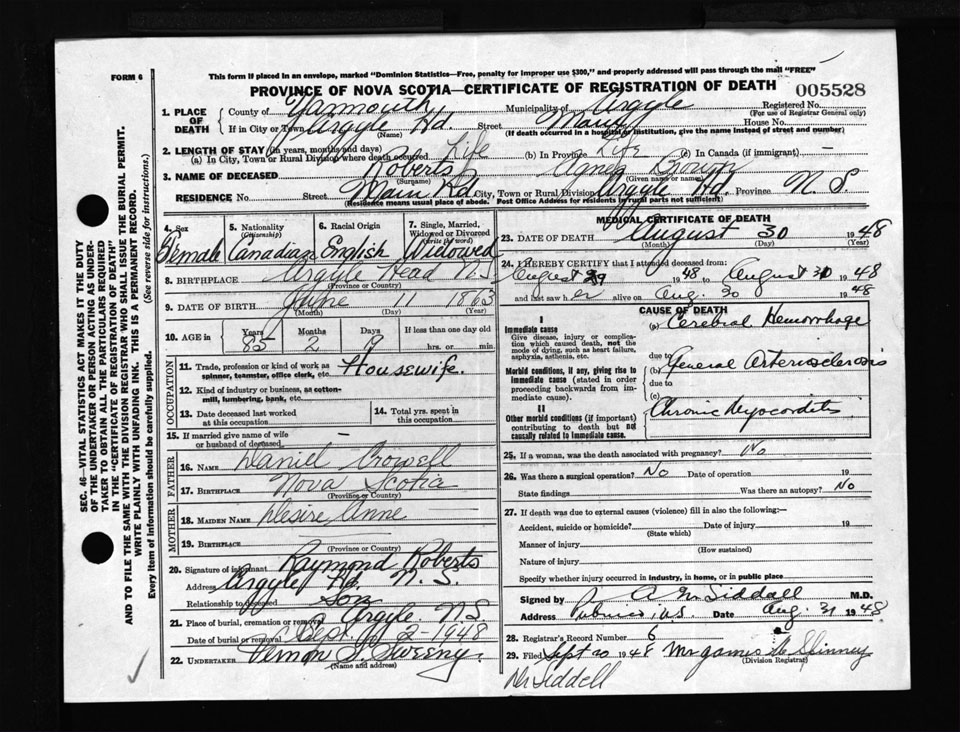 FORM 6
This form if placed in an envelope, marked "Dominion Statistics—Free, penalty for improper use $300," and properly addressed will pass through the mail "FREE"
PROVINCE OF NOVA SCOTIA—CERTIFICATE OF REGISTRATION OF DEATH
005528
1. PLACE OF DEATH
County of Yarmouth Municipality of Argyle Registered No.
(For use of Registrar General only)
If in City or Town Argyle Hd. Street Main House No.
(Name) (If death occurred in a hospital or institution, give name instead of street and number)
2. LENGTH OF STAY (in years, months and days)
(a) In City, Town or Rural Division where death occurred Life (b) In Province Life (c) In Canada (if immigrant) —
3. NAME OF DECEASED Roberts
(Surname) (Given name or names)
RESIDENCE No Street Main Rd City, Town or Rural Division Argyle Hd. Province N. S.
(Residence means usual place of abode. Post Office Address for residents in rural parts not sufficient)
4. Sex Female
5. Nationality (Citizenship) Canadian
6. Racial Origin English
7. Single, Married, Widowed or Divorced (write the word) Widowed
8. BIRTHPLACE Argyle Head N.S
(Province or Country)
9. DATE OF BIRTH June 11 1863
(Month) (Day) (Year)
10. AGE in Years Months Days If less than one day old
85 2 19 hrs. or min.
OCCUPATION
11. Trade, profession or kind of work as spinner, teamster, office clerk, etc. Housewife.
12. Kind of industry or business, as cotton-mill, lumbering, bank, etc.
13. Date deceased last worked at this occupation
14. Total yrs. spent in this occupation
15. If married give name of wife or husband of deceased —
FATHER
16. NAME Daniel Crowell
17. BIRTHPLACE Nova Scotia
(Province or Country)
MOTHER
18. MAIDEN NAME Desire Anne
19. BIRTHPLACE
(Province or Country)
20. Signature of informant Raymond Roberts
Address Argyle Hd. N. S.
Relationship to deceased Son
21. Place of burial, cremation or removal Argyle. N.S.
Date of burial or removal Sept. 2-1948
22. UNDERTAKER Vernon S. Sweeny.
(Name and address)
MEDICAL CERTIFICATE OF DEATH
23. DATE OF DEATH August 30 1948
(Month) (Day) (Year)
24. I HEREBY CERTIFY that I attended deceased from:
August 29 1948 to August 30 1948
and last saw her alive on Aug. 30 1948
CAUSE OF DEATH
I
Immediate cause
Give disease, injury or complication which caused death, not the mode of dying, such as heart failure, asphyxia, asthenia, etc.
(a) Cerebral Hemorrhage
due to
Morbid conditions, if any, giving rise to immediate cause (stated in order proceeding backwards from immediate cause).
General Arteriosclerosis
due to
(c)
II
Other morbid conditions (if important) contributing to death but not causally related to immediate cause.
Chronic Myocarditis
25. If a woman, was the death associated with pregnancy? No
26. Was there a surgical operation? No Date of operation 19
State findings Was there an autopsy? No
27. If death was due to external causes (violence) fill in also the following:—
Accident, suicide or homicide? Date of injury 19
(State which)
Manner of injury
(How sustained)
Nature of injury
Specify whether injury occurred in industry, in home, or in public place
Signed by A M Siddall M.D.
Address Pubnico, N.S. Date Aug. 31 1948
28. Registrar's Record Number 6
29. Filed Sept 20 1948 Mrs James H Spinney
(Division Registrar)
Dr Siddell
SEC. 46—VITAL STATISTICS ACT MAKES IT THE DUTY OF THE UNDERTAKER OR PERSON ACTING AS UNDERTAKER TO OBTAIN ALL THE PARTICULARS REQUIRED IN THE "CERTIFICATE OF REGISTRATION OF DEATH" AND TO FILE THE SAME WITH THE DIVISION REGISTRAR WHO SHALL ISSUE THE BURIAL PERMIT.
WRITE PLAINLY WITH UNFADING INK. THIS IS A PERMANENT RECORD.
Every item of information should be carefully supplied. (See reverse side for instructions.)